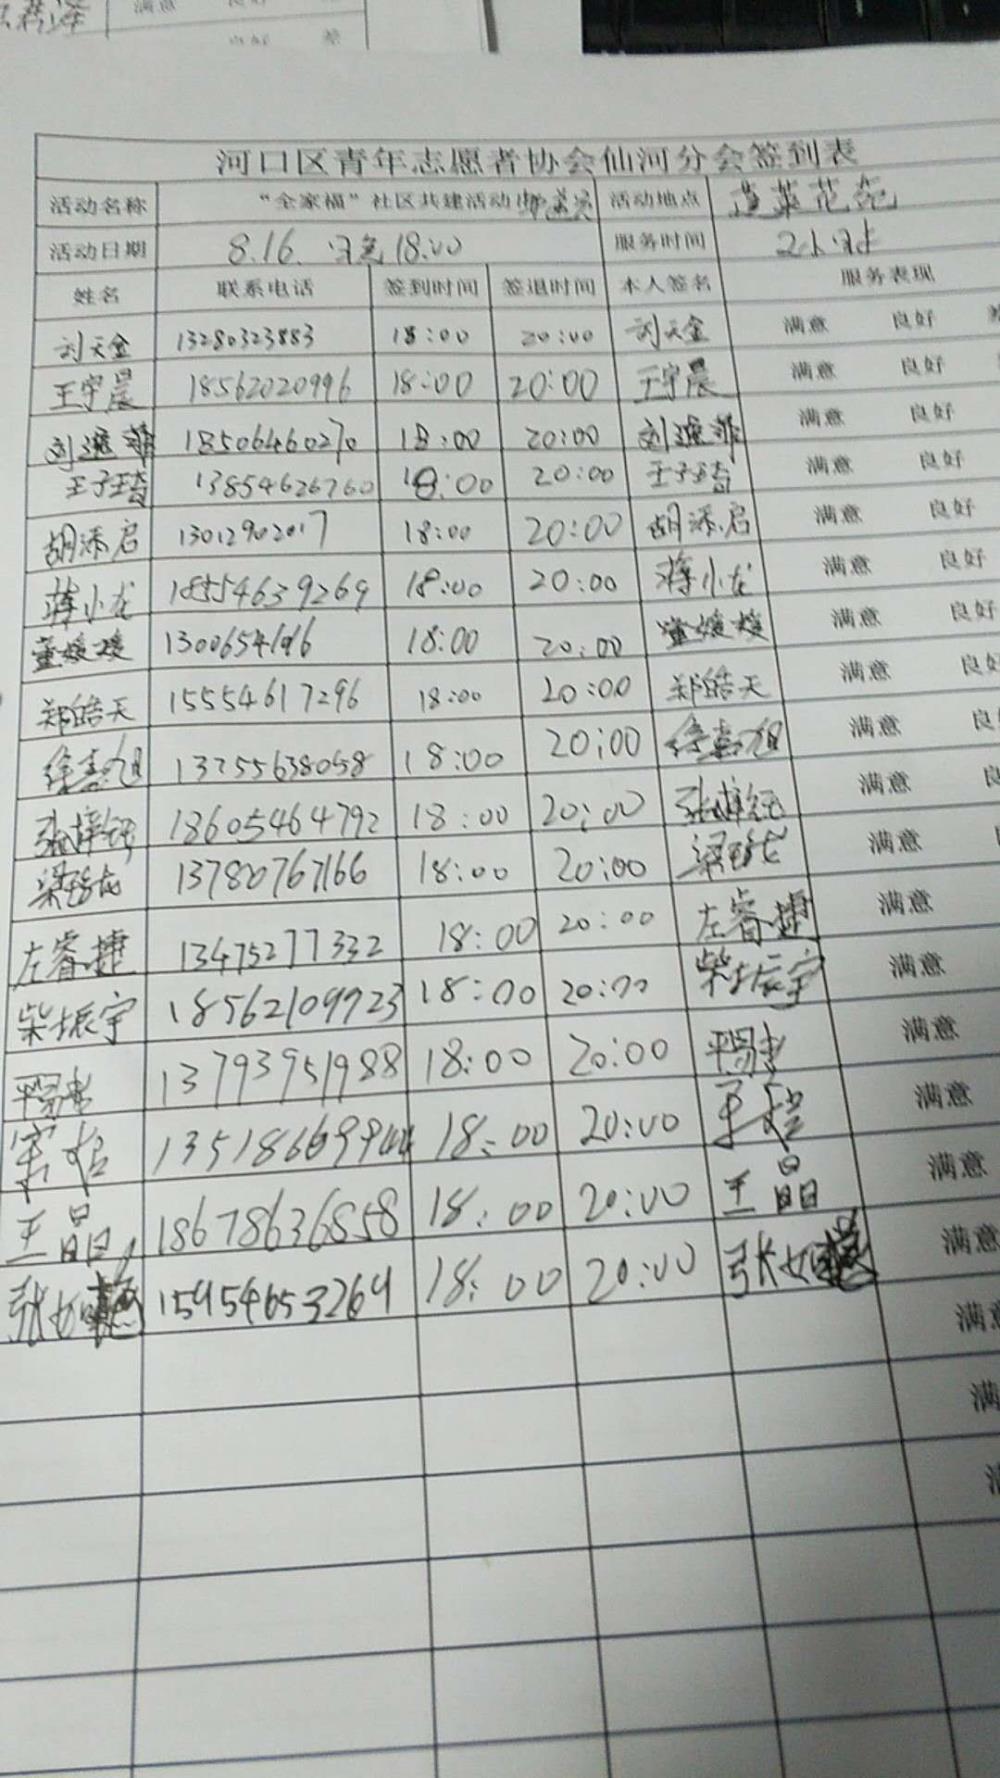 满意
良好 差
河口区青年志愿者协会仙河分会签到表
活动名称 “全家福”社区共建活动 活动地点 蓬莱花苑
活动日期 8.16. 18:00 服务时间 2小时
姓名 联系电话 签到时间 签退时间 本人签名 服务表现
刘天金 13280323883 18:00 20:00 刘天金 满意 良好 差
王宇晨 18562020996 18:00 20:00 王宇晨 满意 良好
刘逸菲 18506460270 18:00 20:00 刘逸菲 满意 良好
王子琦 13854626760 18:00 20:00 王子琦 满意 良好
胡添启 13012902017 18:00 20:00 胡添启 满意 良好
蒋小龙 18554639269 18:00 20:00 蒋小龙 满意 良好
董媛媛 18:00 20:00 董媛媛 满意 良好
郑皓天 15554617296 18:00 20:00 郑皓天 满意 良好
徐嘉旭 13255638058 18:00 20:00 徐嘉旭 满意 良
张梓钰 18605464792 18:00 20:00 张梓钰 满意 良
13780767166 18:00 20:00 满意
左睿捷 13475277332 18:00 20:00 左睿捷 满意
柴振宇 18562109923 18:00 20:00 柴振宇 满意
13793951988 18:00 20:00 满意
18:00 20:00 满意
王晶 18678636858 18:00 20:00 王晶 满意
15954653264 18:00 20:00 满意
满意
满